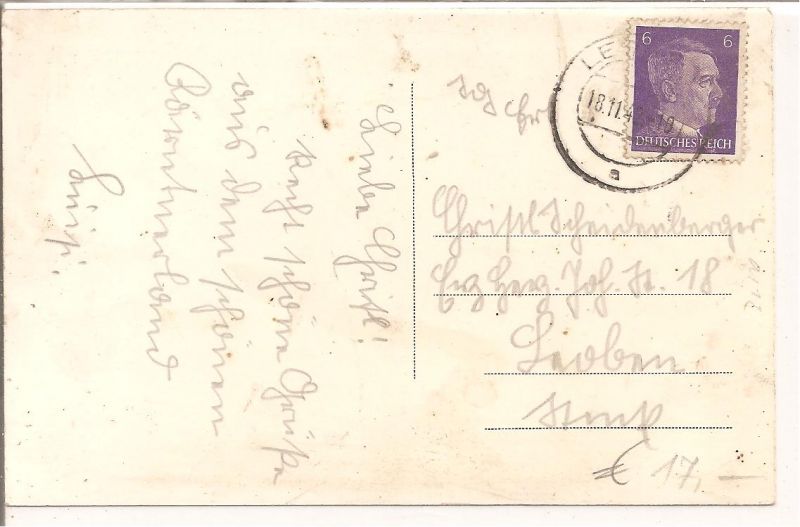 Liebe Christl!
Recht schöne Grüße
aus dem schönen
Kärntnerland
Luisi.
6 6
DEUTSCHES REICH
LE
18.11.4
a
Christl Scheidenberger
Erz Herz. Joh. St. 18
Leoben
€ 17,—